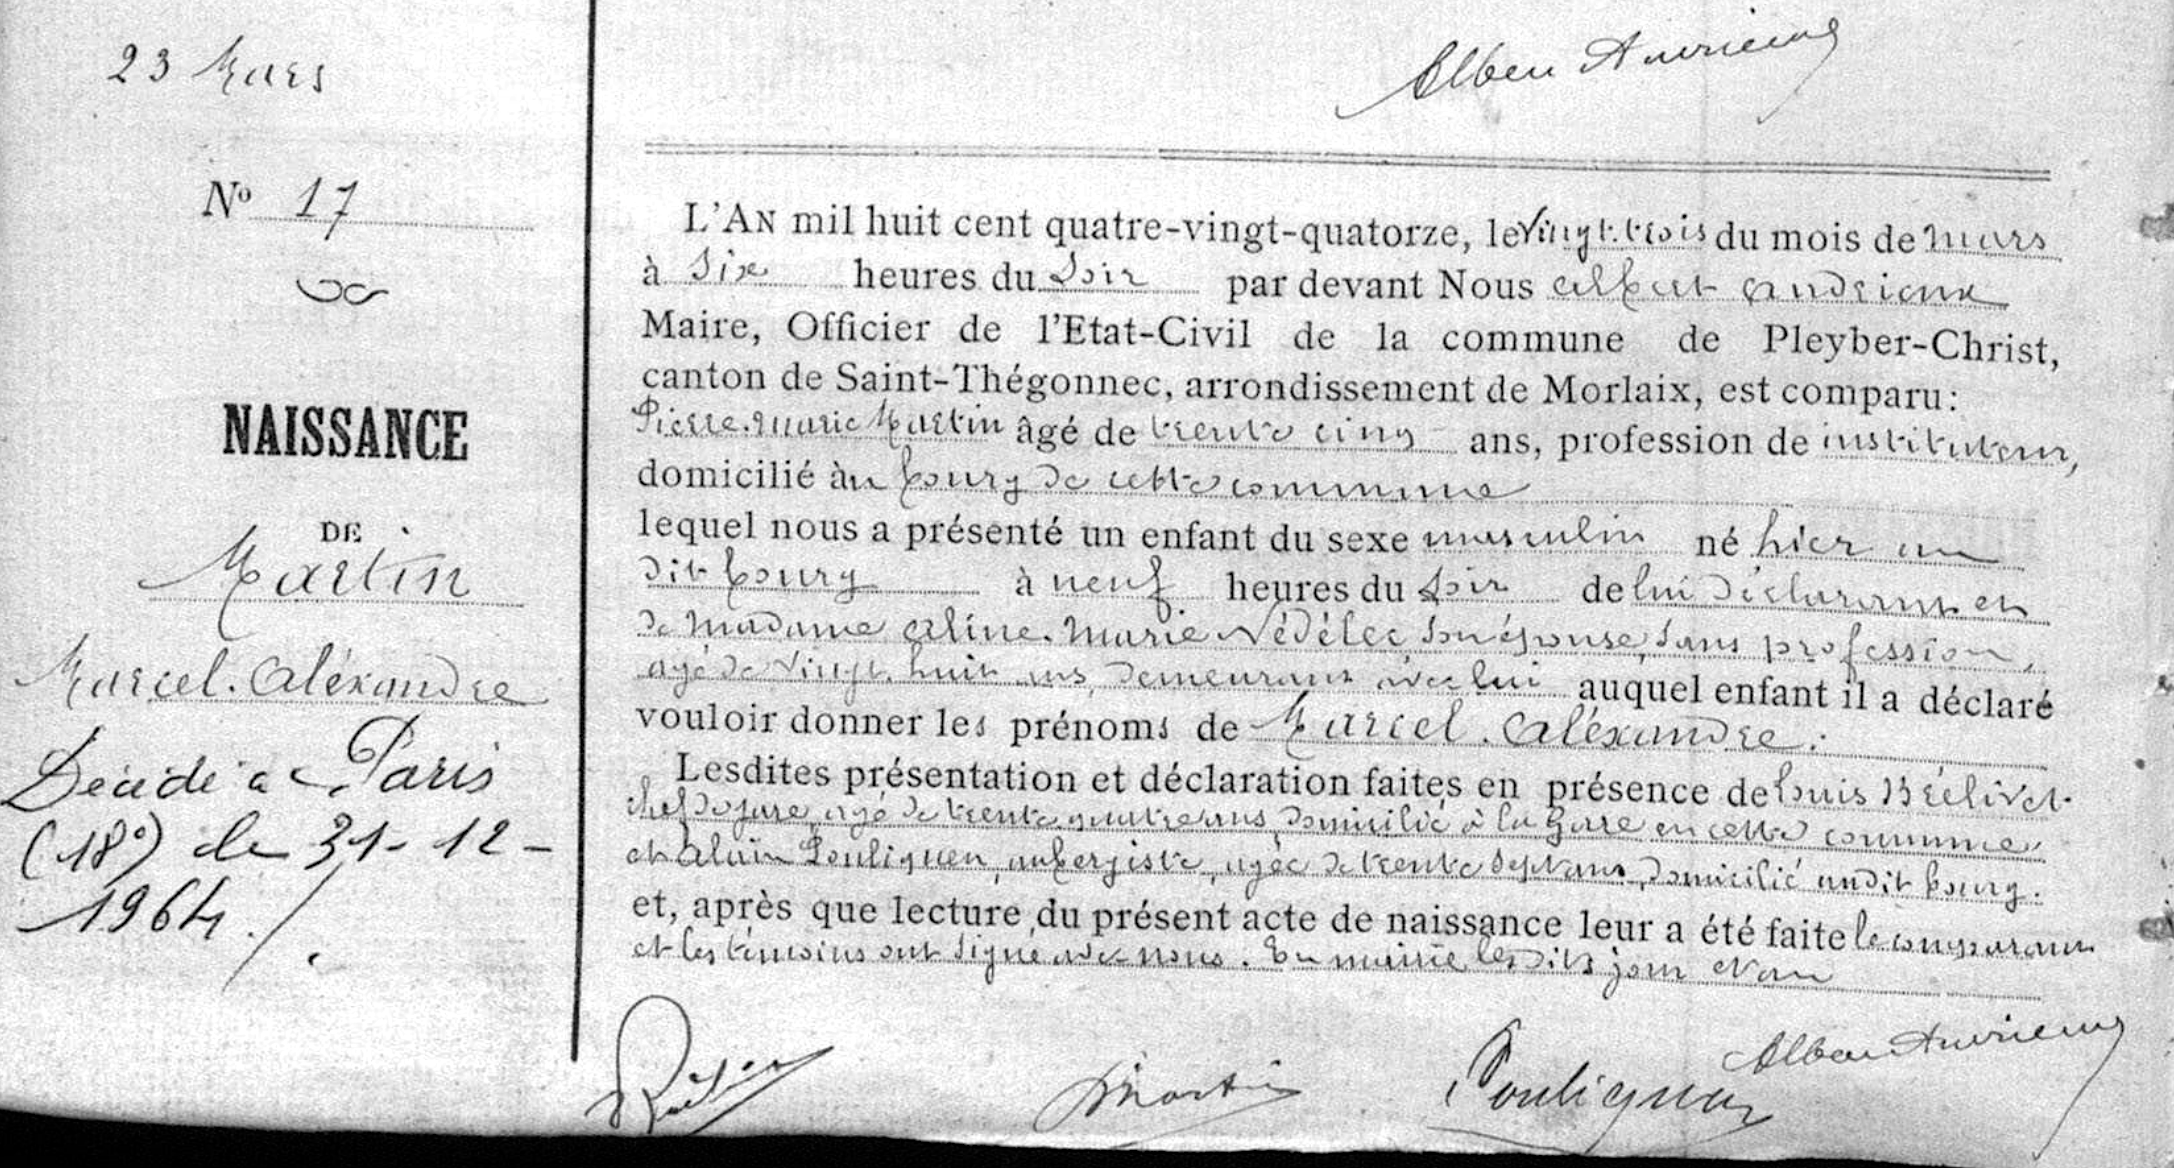 23 Mars
Nº 17
NAISSANCE
DE
Martin
Marcel. Aléxandre
Décédé à Paris
(18º) le 31-12-
1964.
Albert Andrieux
L'AN mil huit cent quatre-vingt-quatorze, le vingt-trois du mois de mars
à Six heures du Soir par devant Nous Albert Andrieux
Maire, Officier de l'Etat-Civil de la commune de Pleyber-Christ,
canton de Saint-Thégonnec, arrondissement de Morlaix, est comparu:
Pierre-Marie Martin âgé de trente cinq ans, profession de instituteur,
domicilié àu bourg de cette commune
lequel nous a présenté un enfant du sexe masculin né hier au
dit bourg à neuf heures du soir de lui déclarant et
de madame Aline-Marie Nédélec son épouse, sans profession,
agé de vingt-huit ans, demeurant avec lui auquel enfant il a déclaré
vouloir donner les prénoms de Marcel. Aléxandre.
Lesdites présentation et déclaration faites en présence de Louis Brélivet
chef de gare, agé de trente-quatre ans, domicilié à la Gare en cette commune
et Alain Pouliquen, aubergiste, agée de trente Sept ans, domicilié audit bourg.
et, après que lecture du présent acte de naissance leur a été faite le comparant
et les témoins ont signé avec nous. En mairie les dits jour et an
Martin
Pouliquen
Albert Andrieux